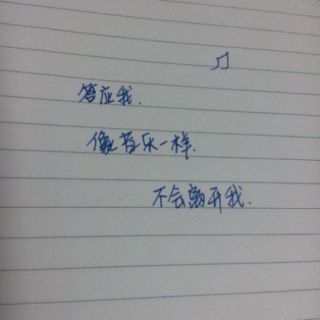 ♫
答应我.
像音乐一样.
不会离开我.